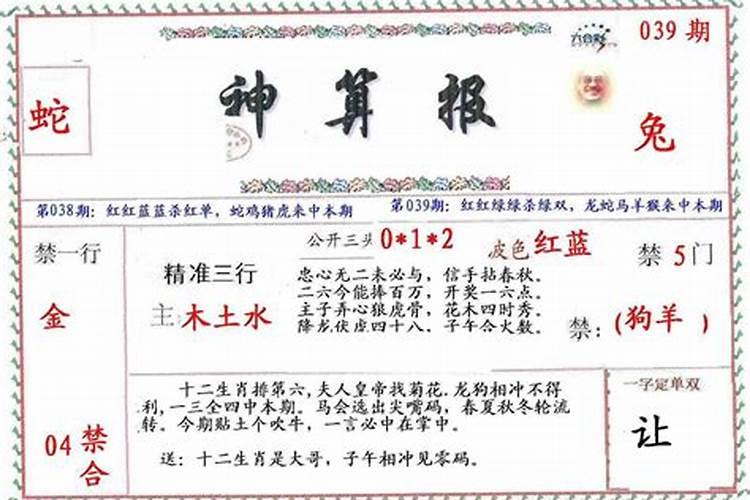 六合彩
039 期
神算报
蛇
兔
第038期：红红蓝蓝杀红单，蛇鸡猪虎来中本期
第039期：红红绿绿杀绿双，龙蛇马羊猴来中本期
禁一行
金
04 禁合
精准三行
主 木土水
公开三头 0*1*2
波色 红蓝
禁 5 门
忠心无二未必与，信手拈春秋。
二六今能捧百万，开奖一六点。
主子弄心狼虎骨，花木四时秀。
降龙伏虎四十八，子午合火数。
禁：(狗羊 )
十二生肖排第六，夫人皇帝找菊花．龙狗相冲不得
利，一三全四中本期。马会选出尖嘴码，春夏秋冬轮流
转。今期贴土个吹牛，一言必中在掌中。
送：十二生肖是大哥，子午相冲见零码。
一字定单双
让